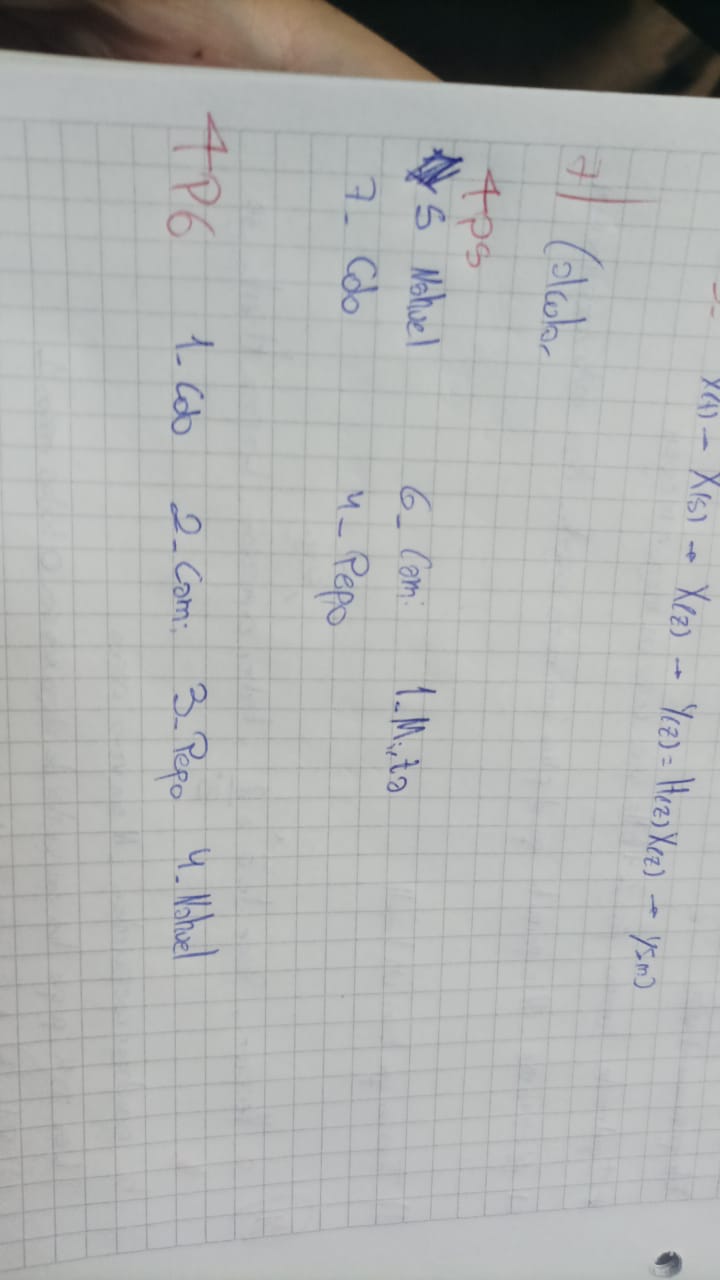 X(t) - X(s) → X(z) → Y(z) = H(z)X(z) → y[m]
7| Calcular
TP5
5 Nahuel 6_ Cami 1_Mirta
7_ Cdo 4_ Pepo
TP6 1_ Cdo 2_ Cami 3_ Pepo 4_ Nahuel